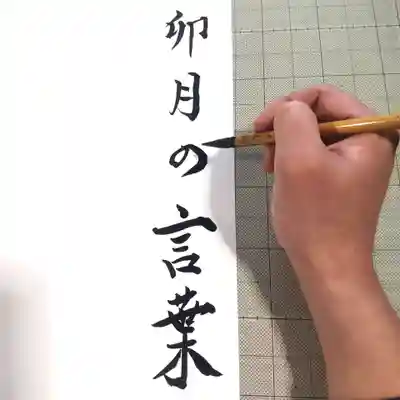 卯月の言葉